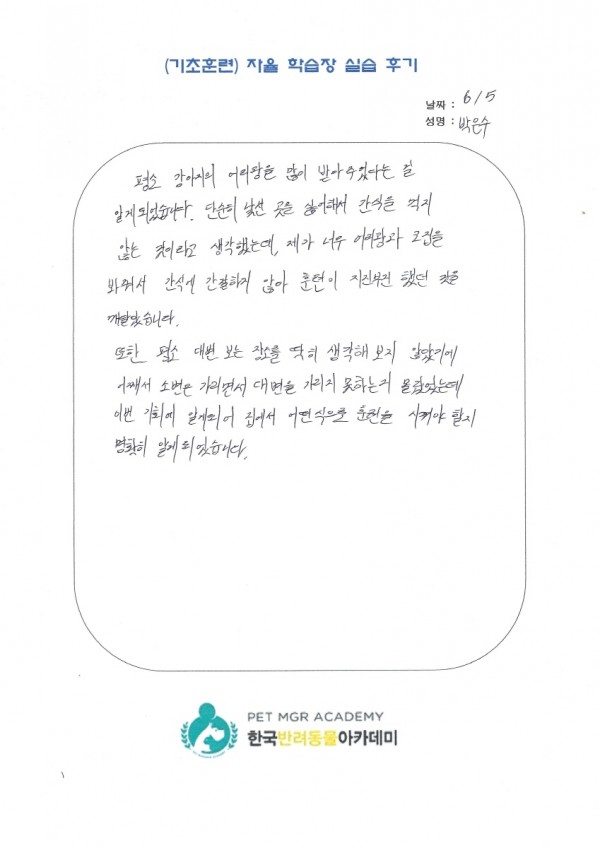 (기초훈련) 자율 학습장 실습 후기
날짜 : 6/5
성명 : 박은수
평소 강아지의 어리광을 많이 받아주었다는 걸
알게되었습니다. 단순히 낯선 곳을 싫어해서 간식을 먹지
않는 것이라고 생각했는데, 제가 너무 어리광과 고집을
봐줘서 간식에 간절하지 않아 훈련이 지지부진 했던 것을
깨달았습니다.
또한 평소 대변 보는 장소를 딱히 생각해 보지 않았기에
어째서 소변은 가리면서 대변을 가리지 못하는지 몰랐었는데
이번 기회에 알게되어 집에서 어떤식으로 훈련을 시켜야 할지
명확히 알게 되었습니다.
PET MGR ACADEMY
한국반려동물아카데미